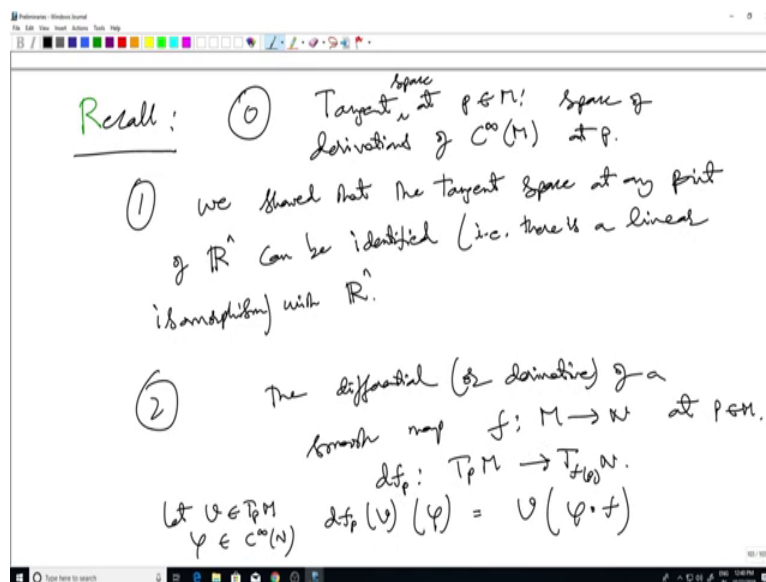 Preliminaries - Windows Journal
File Edit View Insert Actions Tools Help
Recall: ⓪ Tangent space at p ∈ M: space of
derivations of C^∞(M) at p.
① we showed that the tangent space at any point
of ℝ^n can be identified (i.e. there is a linear
isomorphism) with ℝ^n.
② The differential (or derivative) of a
smooth map f: M → N at p ∈ M.
df_p: T_pM → T_{f(p)}N.
Let v ∈ T_pM df_p(v)(φ) = v(φ∘f)
φ ∈ C^∞(N)
Type here to search
ENG 12:40 PM